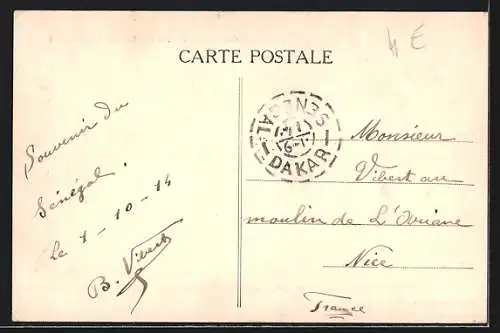 CARTE POSTALE
4 E
Souvenir du
Sénégal.
Le 1-10-14
B. Vibert
SÉNÉGAL
DAKAR
Monsieur
Vibert au
moulin de L'Ariane
Nice
France